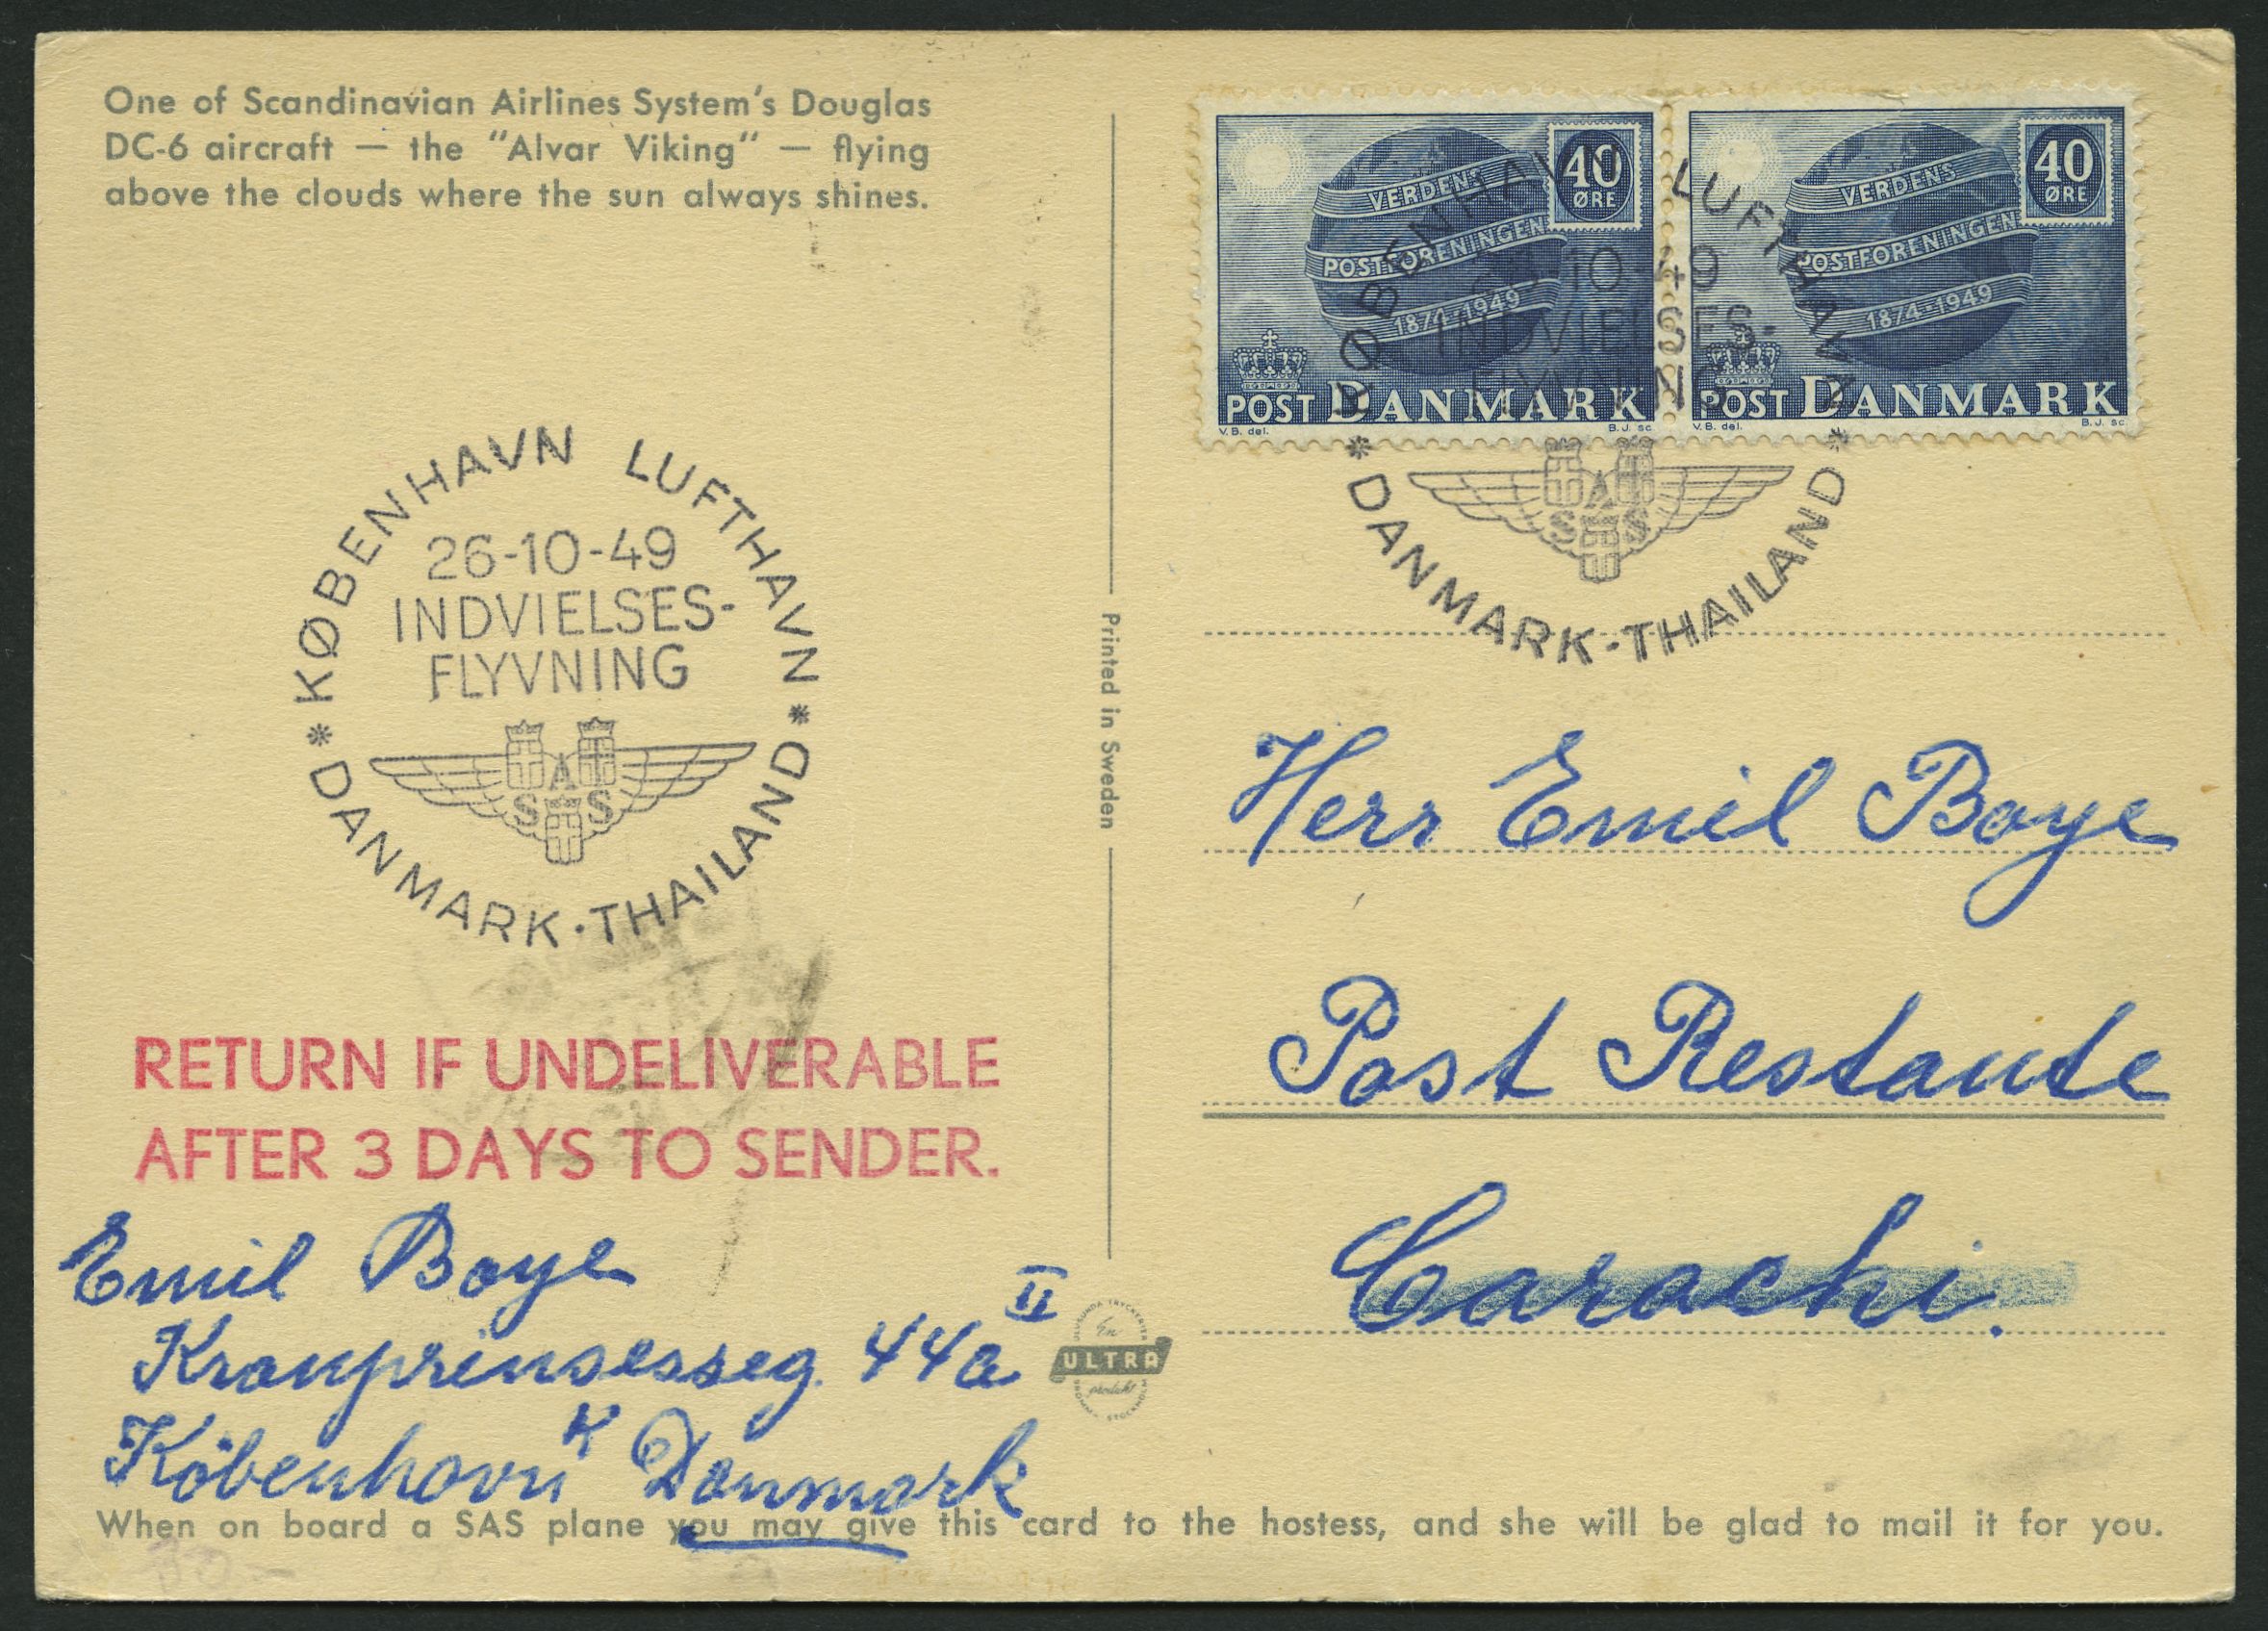 One of Scandinavian Airlines System's Douglas
DC-6 aircraft — the "Alvar Viking" — flying
above the clouds where the sun always shines.
VERDENS
POSTFORENINGEN
1874-1949
40
ØRE
POST DANMARK
V.B. del.
B.J. sc.
VERDENS
POSTFORENINGEN
1874-1949
40
ØRE
POST DANMARK
V.B. del.
B.J. sc.
KØBENHAVN LUFTHAVN
10-49
INDVIELSES-
FLYVNING
SAS
* DANMARK · THAILAND *
KØBENHAVN LUFTHAVN
26-10-49
INDVIELSES-
FLYVNING
SAS
* DANMARK · THAILAND *
Printed in Sweden
Herr Emil Boye
Post Restante
Carachi.
RETURN IF UNDELIVERABLE
AFTER 3 DAYS TO SENDER.
Emil Boye
Kronprinsesseg. 44a II
København K Danmark
En
ULTRA
produkt
STOCKHOLM
When on board a SAS plane you may give this card to the hostess, and she will be glad to mail it for you.